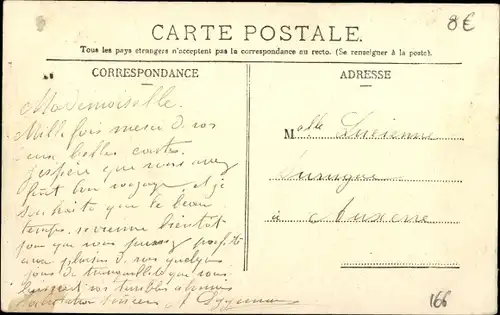 8€
CARTE POSTALE.
Tous les pays étrangers n'acceptent pas la correspondance au recto. (Se renseigner à la poste).
CORRESPONDANCE
ADRESSE
Mademoiselle.
Mille fois merci de vos
belles cartes
j'espère que vous avez
fait bon voyage, et je
souhaite que le beau
temps revienne bientôt
pour que vous puissiez
de vos quelques
jours de tranquillité que vous
laissent vos terribles
sincère
Melle Lucienne
à Auxerre
166